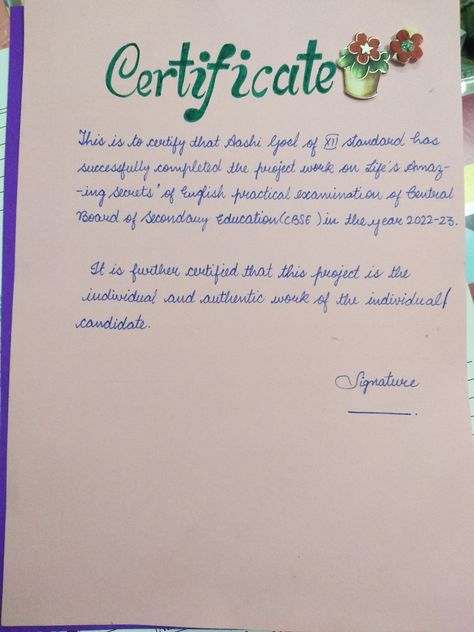 Certificate
This is to certify that Aashi Goel of XII standard has
successfully completed the project work on Life's Amaz-
-ing Secrets" of English practical examination of Central
Board of Secondary Education (CBSE) in the year 2022-23.
It is further certified that this project is the
individual and authentic work of the individual/
candidate.
Signature